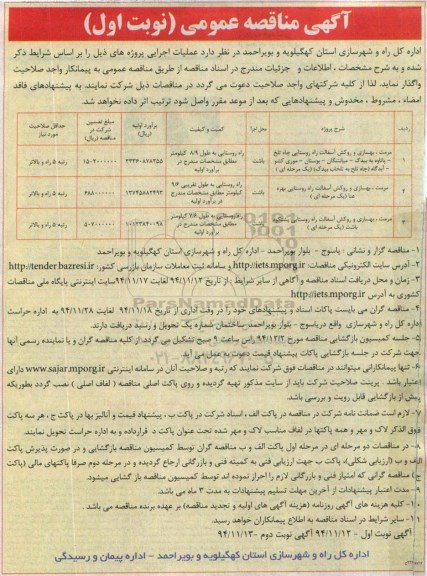 آگهی مناقصه عمومی (نوبت اول)
اداره کل راه و شهرسازی استان کهگیلویه و بویراحمد در نظر دارد عملیات اجرایی پروژه های ذیل را بر اساس شرایط ذکر
شده و به شرح مشخصات ، اطلاعات و جزئیات مندرج در اسناد مناقصه از طریق مناقصه عمومی به پیمانکار واجد صلاحیت
واگذار نماید. لذا از کلیه شرکتهای واجد صلاحیت دعوت می گردد در مناقصات ذیل شرکت نمایند. به پیشنهادهای فاقد
امضاء ، مشروط ، مخدوش و پیشنهادهایی که بعد از موعد مقرر واصل شود ترتیب اثر داده نخواهد شد.
ردیف شرح پروژه محل اجرا کمیت و کیفیت برآورد اولیه (ریال) مبلغ تضمین شرکت در مناقصه (ریال) حداقل صلاحیت مورد نیاز
۱ مرمت ، بهسازی و روکش آسفالت راه روستایی چاه تلخ باشت راه روستایی به طول ۸/۹ کیلومتر مطابق مشخصات مندرج در برآورد اولیه رتبه ۵ راه و بالاتر
۲ مرمت ، بهسازی و روکش آسفالت راه روستایی (یک مرحله ای) باشت راه روستایی به طول تقریبی ۹/۶ کیلومتر مطابق مشخصات مندرج در برآورد اولیه رتبه ۵ راه و بالاتر
۳ مرمت ، بهسازی و روکش آسفالت راه روستایی باشت (یک مرحله ای) باشت مطابق مشخصات مندرج در برآورد اولیه رتبه ۵ راه و بالاتر
۱- مناقصه گزار و نشانی : یاسوج - بلوار بویراحمد - اداره کل راه و شهرسازی استان کهگیلویه و بویراحمد
۲- آدرس سایت الکترونیکی مناقصات: http://iets.mporg.ir و سامانه ثبت معاملات سازمان بازرسی کشور: http://tender.bazresi.ir
۳- زمان و محل دریافت اسناد مناقصه و آگاهی از سایر شرایط : از تاریخ ۹۴/۱۱/۱۳ لغایت ۹۴/۱۱/۱۷ سایت اینترنتی پایگاه ملی مناقصات
کشوری به آدرس http://iets.mporg.ir
۴- مناقصه گران می بایست پاکات اسناد و پیشنهادهای خود را در وقت اداری از تاریخ ۹۴/۱۱/۱۸ لغایت ۹۴/۱۱/۲۸ به اداره حراست
اداره کل راه و شهرسازی واقع در یاسوج - بلوار بویراحمد ساختمان شماره یک تحویل و رسید دریافت دارند.
۵- جلسه کمیسیون بازگشایی مناقصه مورخ ۹۴/۱۲/۳ راس ساعت ۹ صبح تشکیل می گردد. از کلیه مناقصه گران و یا نماینده رسمی آنها
جهت شرکت در جلسه بازگشایی پاکات پیشنهاد قیمت دعوت به عمل می آید.
۶- تنها پیمانکارانی میتوانند در مناقصات فوق شرکت نمایند که رتبه و صلاحیت آنان در سامانه اینترنتی www.sajar.mporg.ir دارای
اعتبار باشد . پرینت صلاحیت شرکت باید از سایت مذکور تهیه گردیده و روی پاکت اصلی مناقصه ( لفاف اصلی ) نصب گردد بطوریکه
پیش از بازگشایی قابل رویت و بررسی باشد.
۷- لازم است ضمانت نامه شرکت در مناقصه در پاکت الف ، اسناد شرکت در پاکت ب ، پیشنهاد قیمت و آنالیز بها در پاکت ج ، هر سه پاکت
فوق الذکر لاک و مهر و همه پاکتها در لفاف مناسب لاک و مهر شده تحت عنوان پاکت د قرارداده و به اداره حراست تحویل نمایند.
۸- در مناقصات دو مرحله ای در مرحله اول پاکت الف و ب مناقصه گران توسط کمیسیون مناقصه بازگشایی و در صورت پذیرش پاکت
الف و ب (ارزیابی شکلی)، پاکت ب جهت ارزیابی فنی به کمیته فنی و بازرگانی ارجاع گردیده و در مرحله دوم صرفا پاکتهای مالی (پاکت
ج ) مناقصه گرانی که امتیاز فنی و بازرگانی لازم را احراز نموده اند توسط کمیسیون مناقصه باز گشایی میشود.
۹- مدت اعتبار پیشنهادات از آخرین مهلت تسلیم پیشنهادات به مدت ۳ ماه می باشد.
۱۰- کلیه هزینه های آگهی روزنامه (هزینه آگهی های اولیه و تجدید مناقصه) بر عهده برنده مناقصه می باشد .
۱۱- سایر شرایط در اسناد مناقصه به اطلاع پیمانکاران خواهد رسید.
آگهی نوبت اول - ۹۴/۱۱/۱۲ آگهی نوبت دوم -۹۴/۱۱/۱۳
اداره کل راه و شهرسازی استان کهگیلویه و بویراحمد - اداره پیمان و رسیدگی